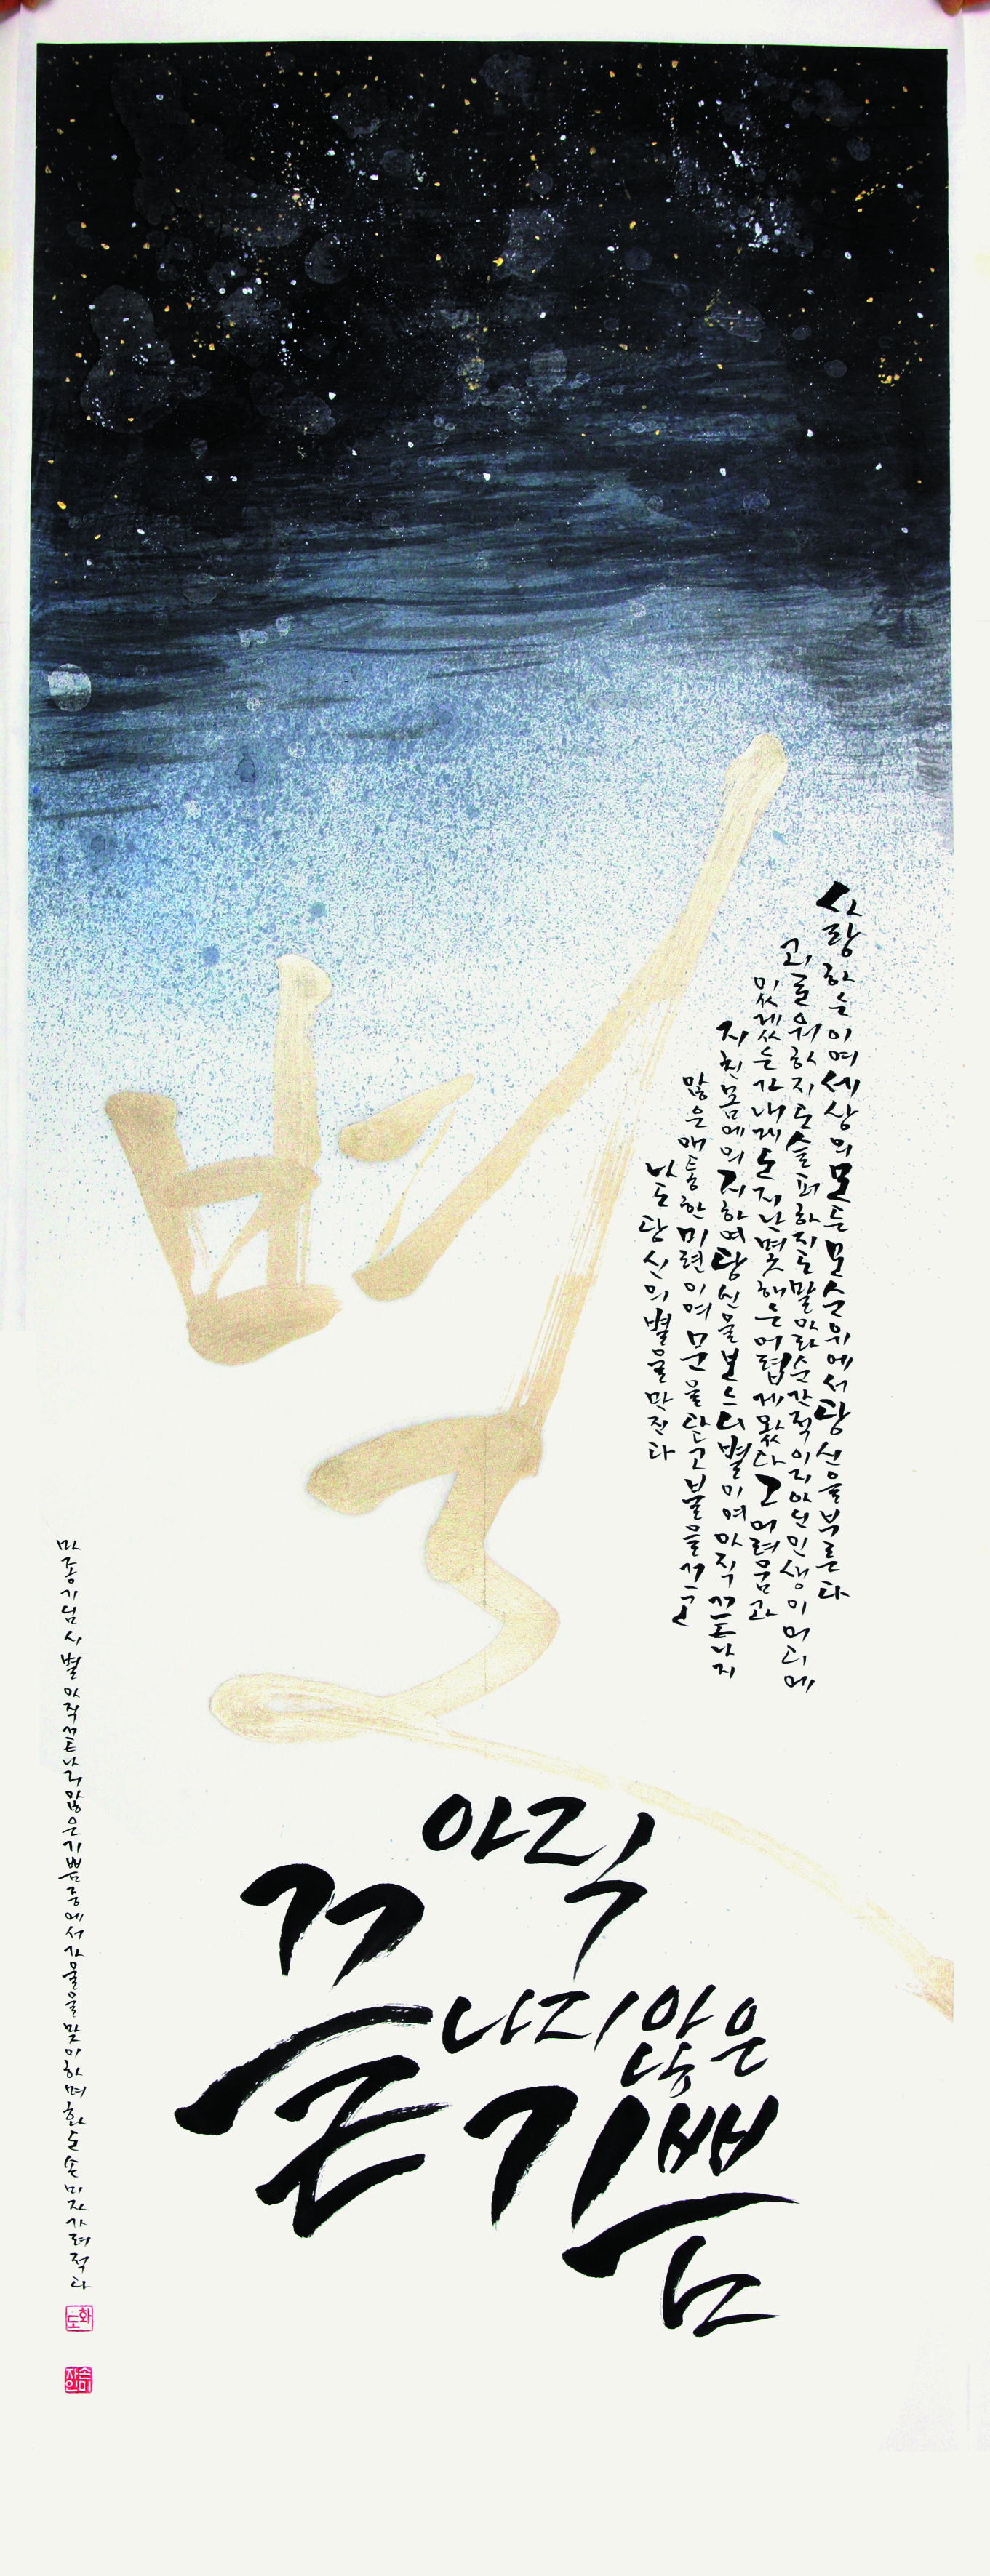 별
사랑하는이여 세상의 모든 모순 위에서 당신을 부른다
괴로워하지도 슬퍼하지도 말아라 순간적이지 아닌 인생이 어디에
있겠는가 내게도 지난 몇 해는 어렵게 왔다 그 어려움과
지친 몸에 의지하여 당신을 보느니 별이여 아직 끝나지
않은 애통한 미련이여 문을 닫고 불을 끄고
나도 당신의 별을 만진다
아직
끝나지 않은
기쁨
마종기님 시 별 아직 끝나지 않은 기쁨 중에서 가을을 맞이하며 화도 손미자 가려 적다
화도
손미자인